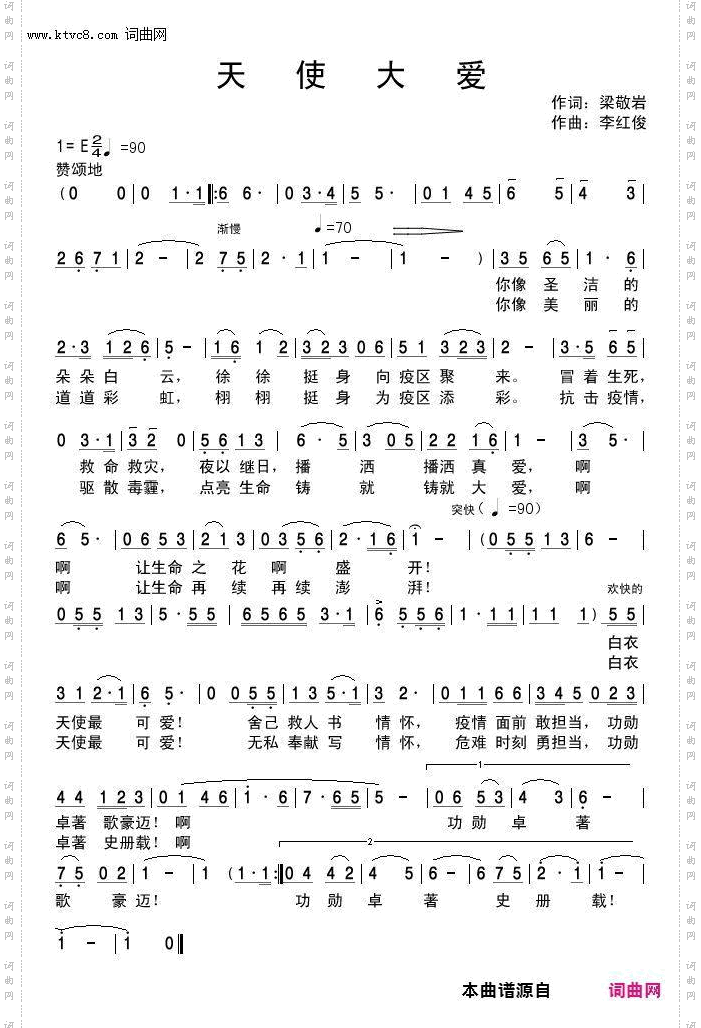 www.ktvc8.com 词曲网
天 使 大 爱
作词：梁敬岩
作曲：李红俊
1=E 2/4 ♩=90
赞颂地
(0 0 | 0 1·1 |: 6 6· | 0 3·4 | 5 5· | 0 1 4 5 | 6 5 | 4 3 |
渐慢 ♩=70
2 6 7 1 | 2 - | 2 7 5 | 2· 1 | 1 - | 1 - ) | 3 5 6 5 | 1· 6 |
你像 圣 洁 的
你像 美 丽 的
2·3 1 2 6 | 5 - | 1 6 1 2 | 3 2 3 0 6 | 5 1 3 2 3 | 2 - | 3·5 6 5 |
朵 朵 白 云， 徐 徐 挺 身 向 疫区 聚 来。 冒 着 生死，
道 道 彩 虹， 栩 栩 挺 身 为 疫区 添 彩。 抗 击 疫情，
0 3·1 | 3 2 0 | 5 6 1 3 | 6· 5 | 3 0 5 | 2 2 1 6 | 1 - | 3 5· |
救 命 救灾， 夜以 继日， 播 洒 播洒 真 爱， 啊
驱 散 毒霾， 点亮 生命 铸 就 铸就 大 爱， 啊
突快( ♩ =90)
6 5· | 0 6 5 3 | 2 1 3 | 0 3 5 6 | 2·1 6 | 1 - | (0 5 5 1 3 | 6 - |
啊 让生命 之 花 啊 盛 开！
啊 让生命 再 续 再 续 澎 湃！
欢快的
0 5 5 1 3 | 5·5 5 | 6 5 6 5 3·1 | 6 5 5 6 | 1·1 1 | 1 1 1 ) | 5 5 |
白衣
白衣
3 1 2·1 | 6 5· | 0 0 5 5 | 3 1 1 3 | 5·1 | 3 2· | 0 1 1 6 6 | 3 4 5 0 2 3 |
天使最 可 爱！ 舍己 救人 书 情 怀， 疫情 面前 敢担当， 功勋
天使最 可 爱！ 无私 奉献 写 情 怀， 危难 时刻 勇担当， 功勋
1
4 4 1 2 3 | 0 1 4 6 | 1· 6 | 7·6 5 | 5 - | 0 6 5 3 | 4 3 | 6 - |
卓著 歌豪迈！ 啊 功 勋 卓 著
卓著 史册载！ 啊
2
7 5 0 2 | 1 - | 1 (1·1 :| 0 4 4 2 | 4 5 | 6 - | 6 7 5 | 2· 1 | 1 - |
歌 豪 迈！ 功 勋 卓 著 史 册 载！
1 - | 1 0 ‖
本曲谱源自 词曲网
词曲网